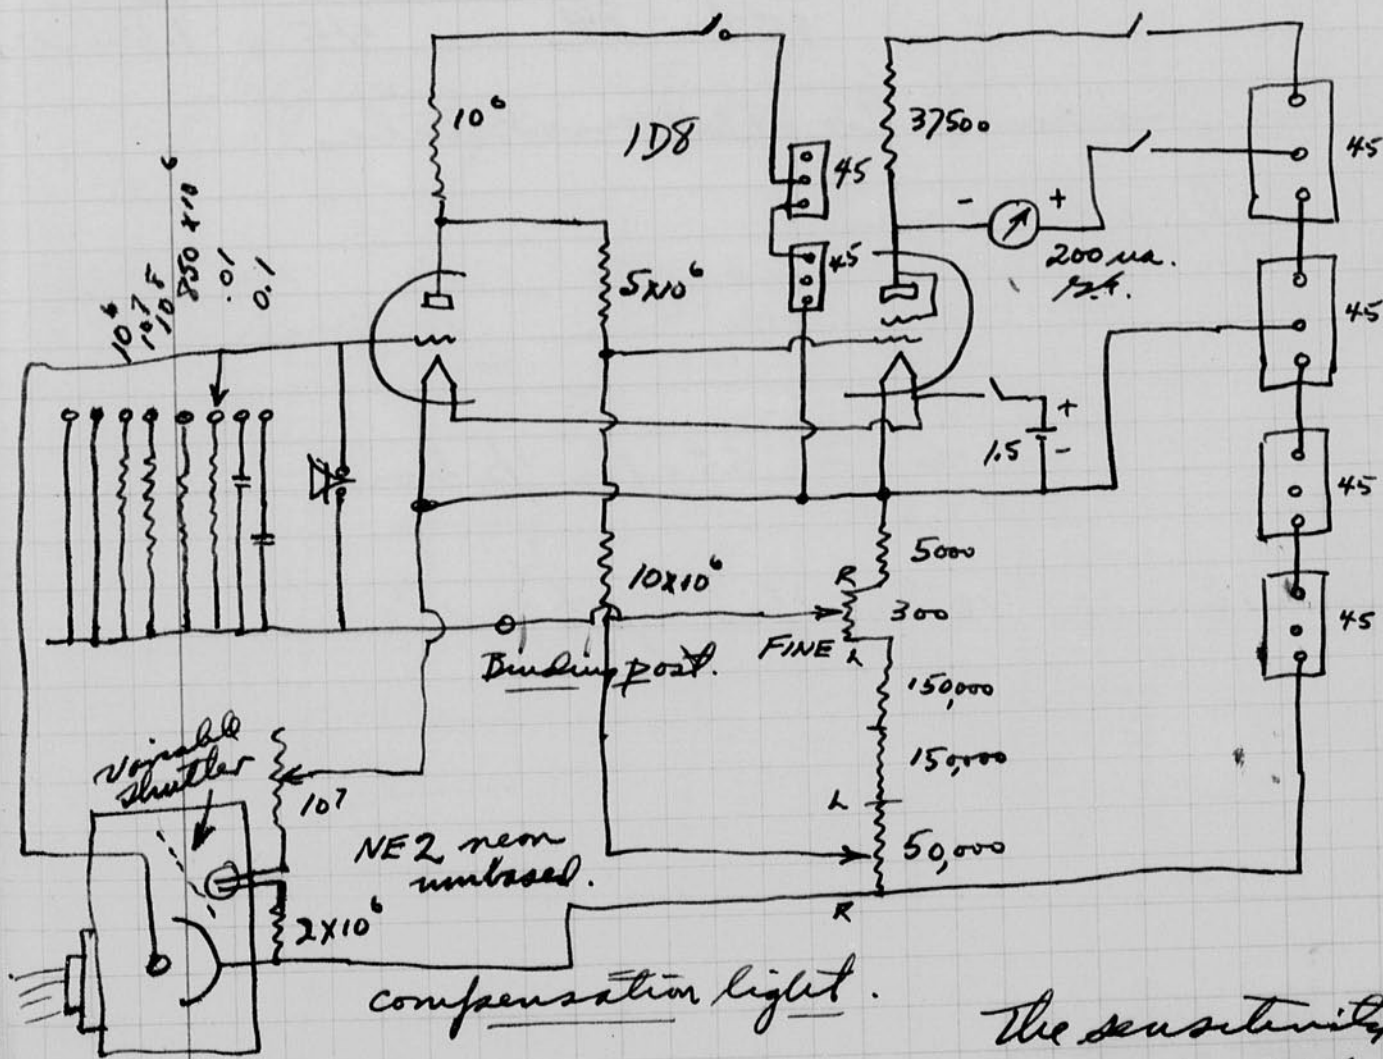 10⁶
1D8
37500
45
45
- +
200 ua.
45
45
5x10⁶
10⁶
10⁷
10⁸
850 x 10⁶
.01
0.1
+
1.5 -
45
5000
10x10⁶
R
300
FINE L
Binding post.
150,000
150,000
L
50,000
R
45
Variable
shutter
10⁷
NE2 neon
unbased.
2x10⁶
compensation light.
The sensitivity